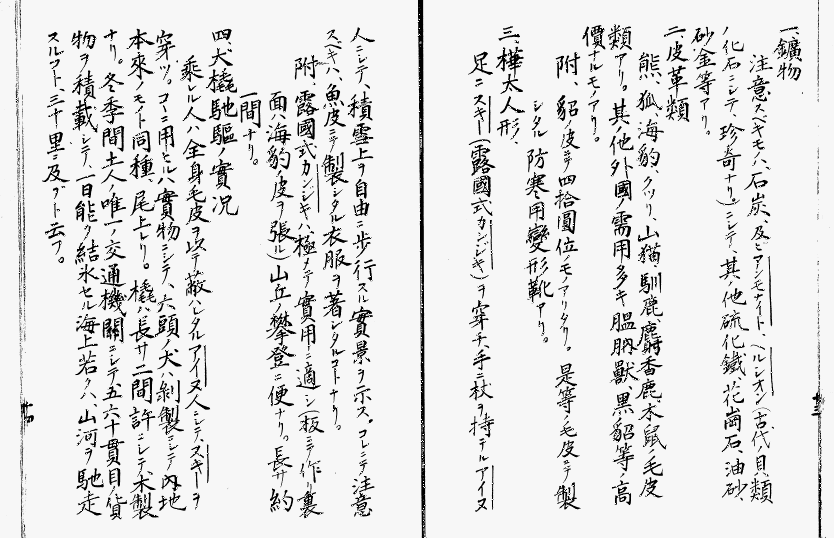 一、鑛物
注意スベキモノハ、石炭、及ビアンモナイト、ヘルシオン(古代ノ貝類
ノ化石ニシテ、珍奇ナリ)ニシテ、其ノ他硫化鐵、花崗石、油砂、
砂金等アリ。
二、皮革類
熊、狐、海豹、クヅリ、山猫、馴鹿、麝香鹿、木鼠ノ毛皮
類アリ。其ノ他外國ノ需用多キ膃肭獸、黒貂等ノ高
價ナルモノアリ。
附、貂ノ皮ニテ四十圓位ノモノアリタリ。是等ノ毛皮ニテ製
シタル防寒用變形靴アリ。
三、樺太人形、
足ニスキー(露國式カンジキ)ヲ穿チ、手ニ杖ヲ持テルアイヌ
十三
人ニシテ、積雪上ヲ自由ニ歩ノ行スル實景ヲ示ス。コレニテ注意
スベキハ、魚皮ニテ製シタル衣服ヲ著シタルコトナリ。
附、露國式カンジキハ、極メテ實用ニ適シ(板ニテ作、裏
面ハ海豹ノ皮ヲ張ル)山丘ノ攀登ニ便ナリ。長サ約
一間ナリ。
四、犬橇馳驅ノ實況
乘レル人ハ全身毛皮ヲ以テ蔽ハレタルアイヌ人ニシテ、スキーヲ
穿ツ。コヽニ用ヒタルハ實物ニシテ、六頭ノ犬ハ剥製ニシテ内地
本來ノモノト同種、尾上レリ。橇ハ長サ二間許ニシテ、木製
ナリ。冬季間土人ノ唯一ノ交通機關ニシテ五六十貫目ノ貨
物ヲ積載シテ、一日能ク結氷セル海上若クハ、山河ヲ馳走
スルコト、三十里ニ及ブト云フ。
十四